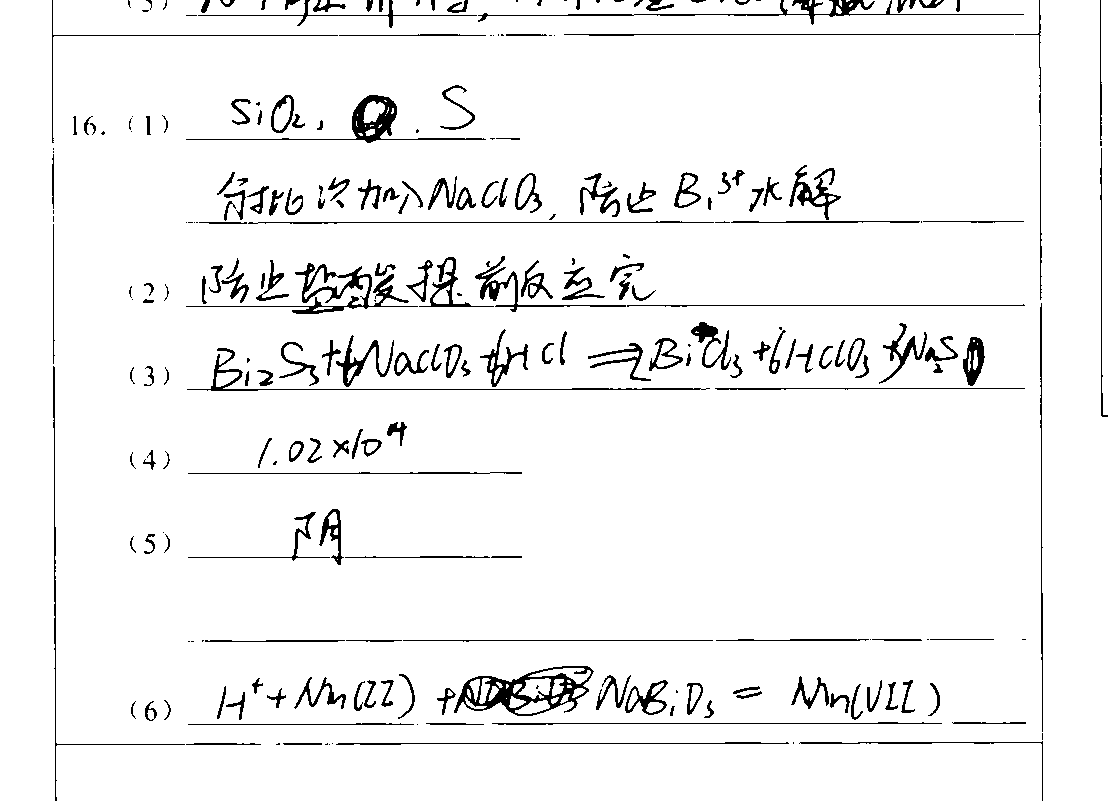 (3)
16. (1) SiO₂, . S
分批次加入NaClO₃, 防止Bi³⁺水解
(2) 防止盐酸提前反应完
(3) Bi₂S₃+6NaClO₃+6HCl ⇒ 2BiCl₃+6HClO₃+3Na₂S
(4) 1.02×10⁴
(5) 阴
(6) H⁺+Mn(II)+ NaBiO₃ = Mn(VII)